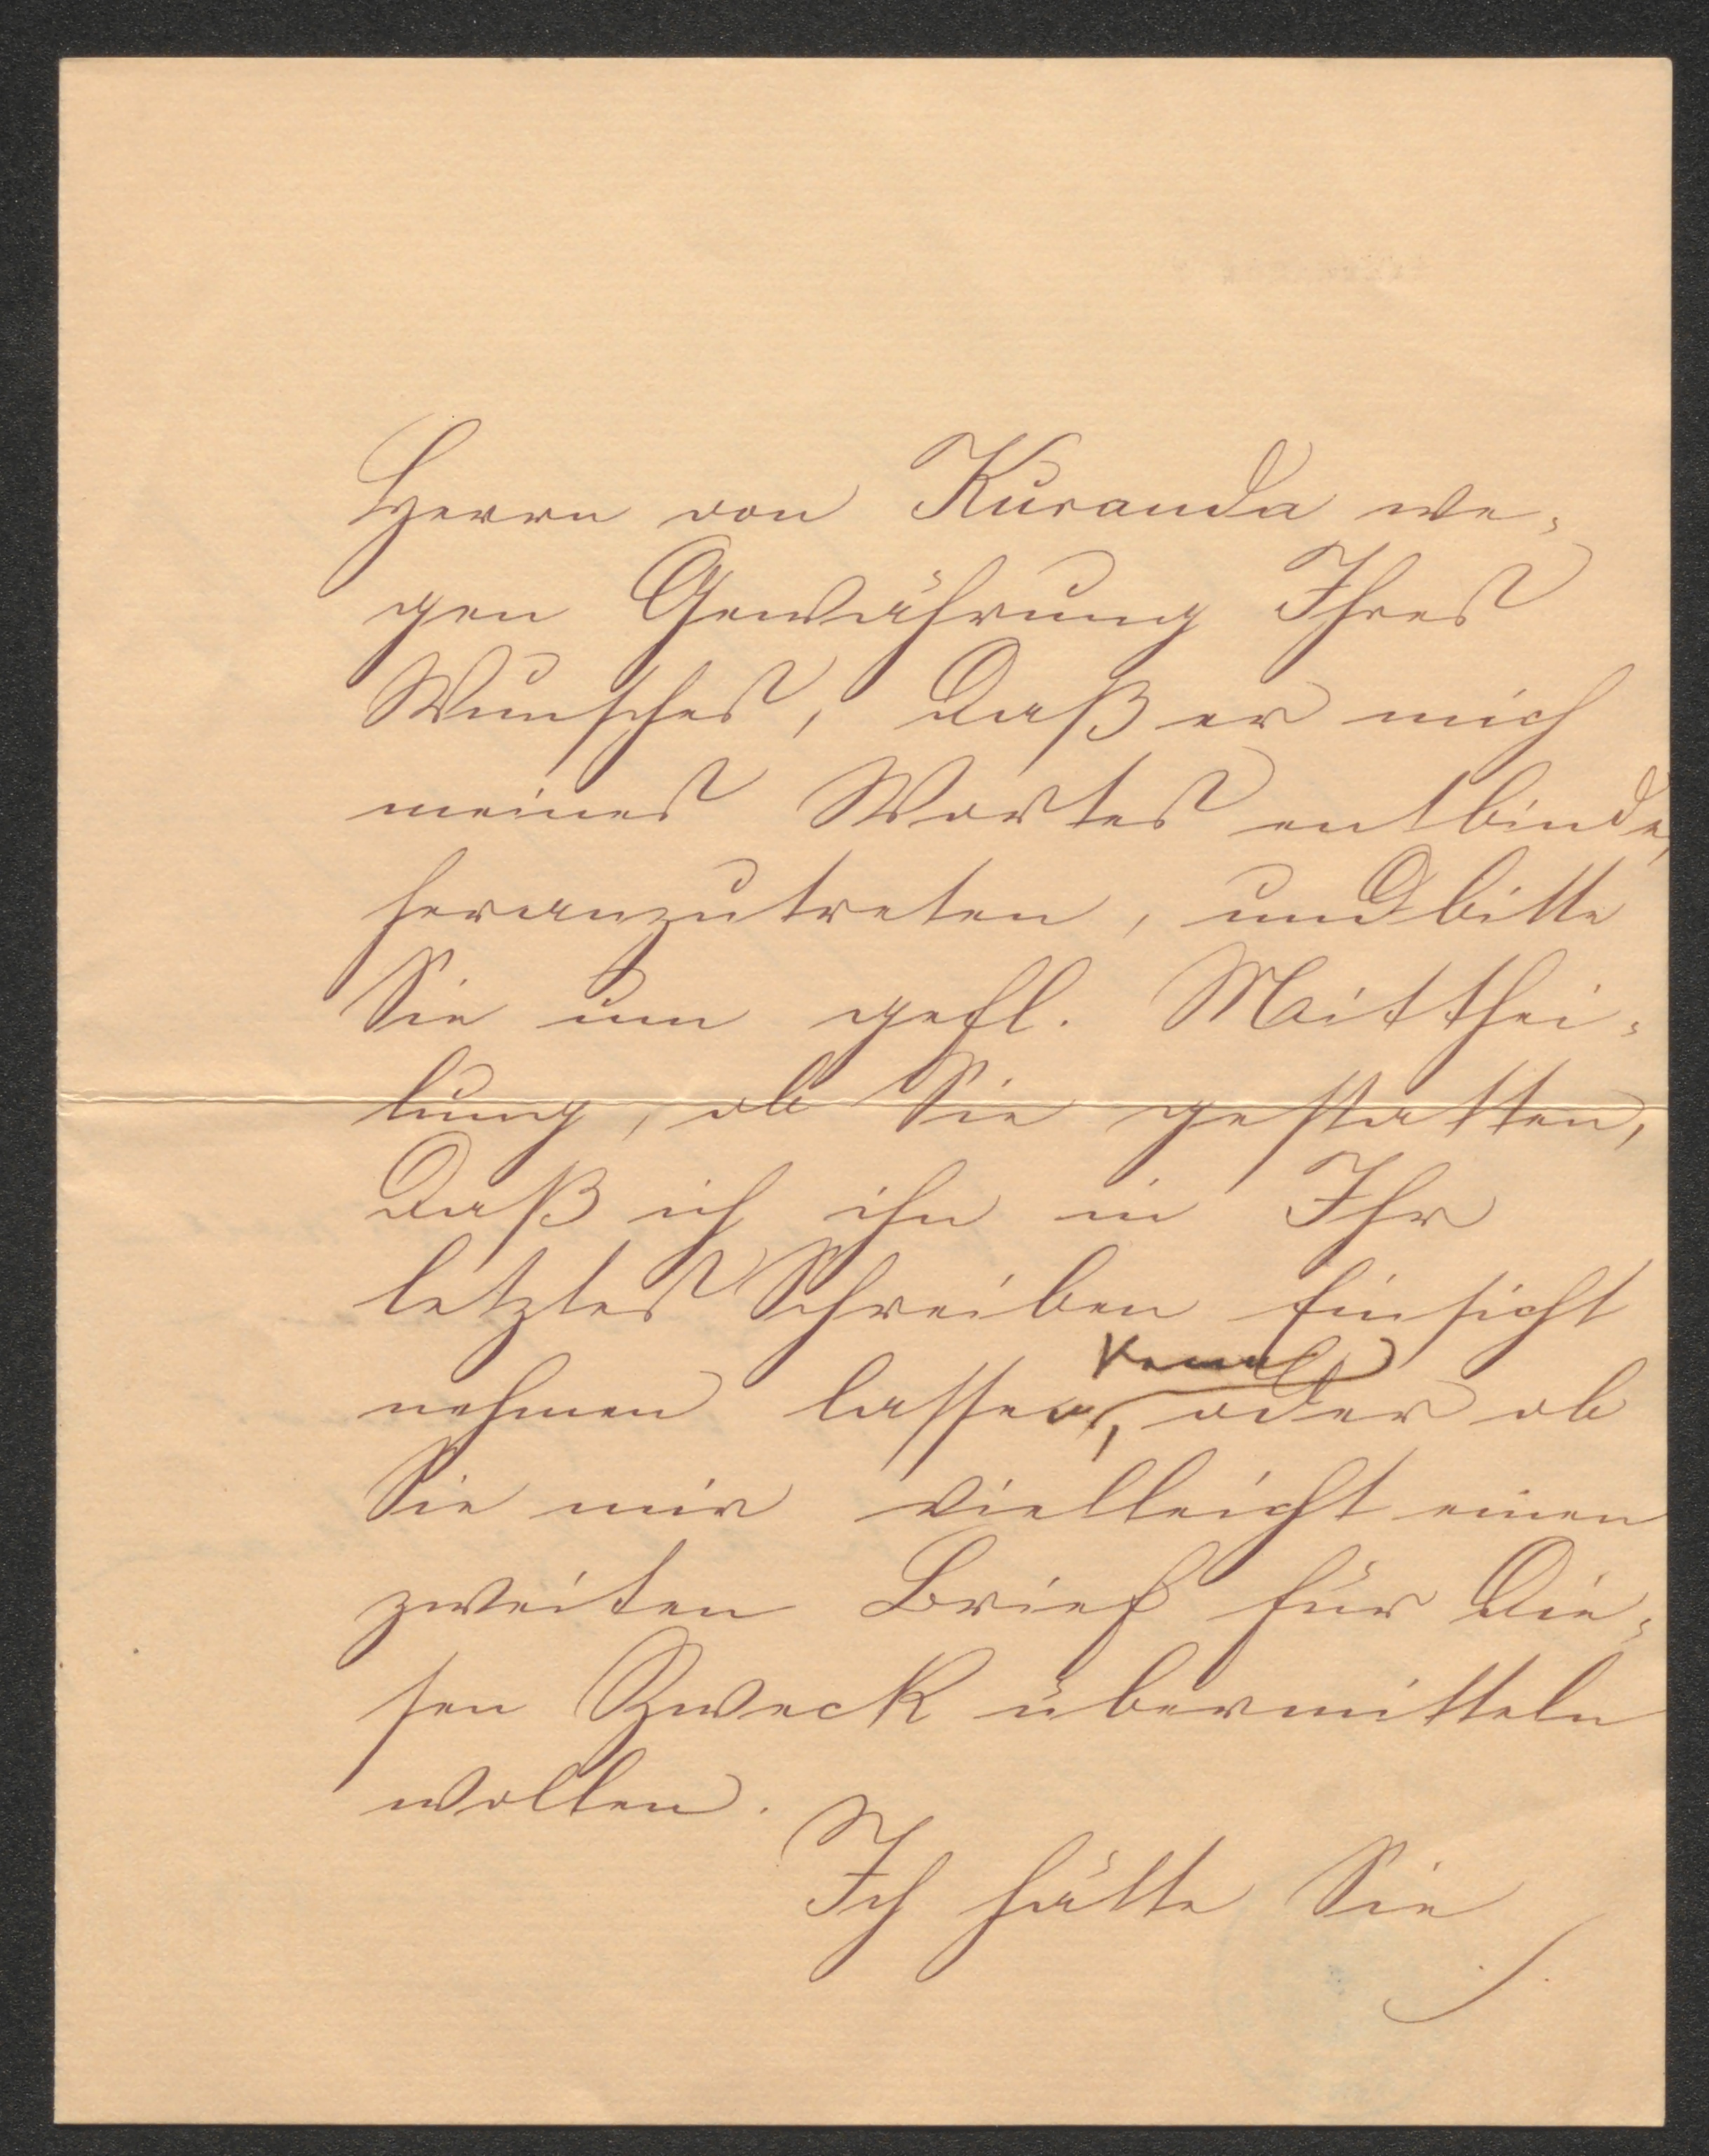 Herrn von Kuranda we-
gen Gewährung Ihres
Wunsches, daß er mich
meines Wortes entbinde,
heranzutreten, und bitte
Sie um gefl. Mitthei-
lung, ob Sie gestatten,
daß ich ihn in Ihr
letztes Schreiben Einsicht
kann
nehmen lassen, oder ob
Sie mir vielleicht einen
zweiten Brief für die-
sen Zweck übermitteln
wollen.
Ich hätte Sie